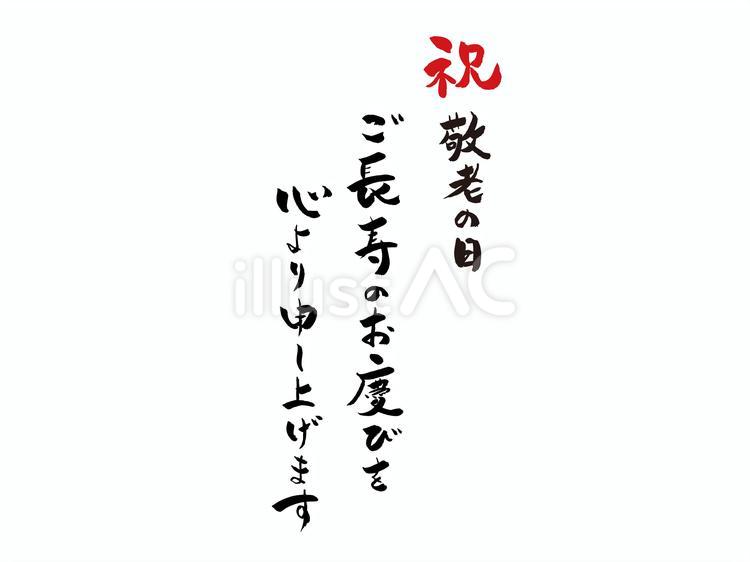 祝 敬老の日
ご長寿のお慶びを
心より申し上げます
illustAC